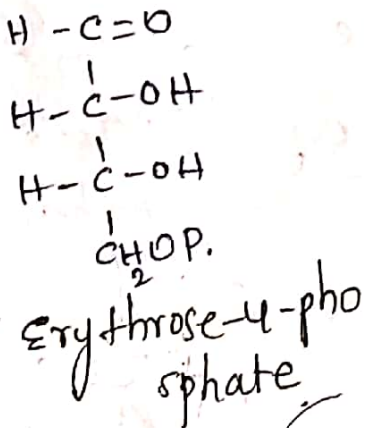 H - C = O
H - C - OH
H - C - OH
CH2OP.
Erythrose-4-pho
sphate